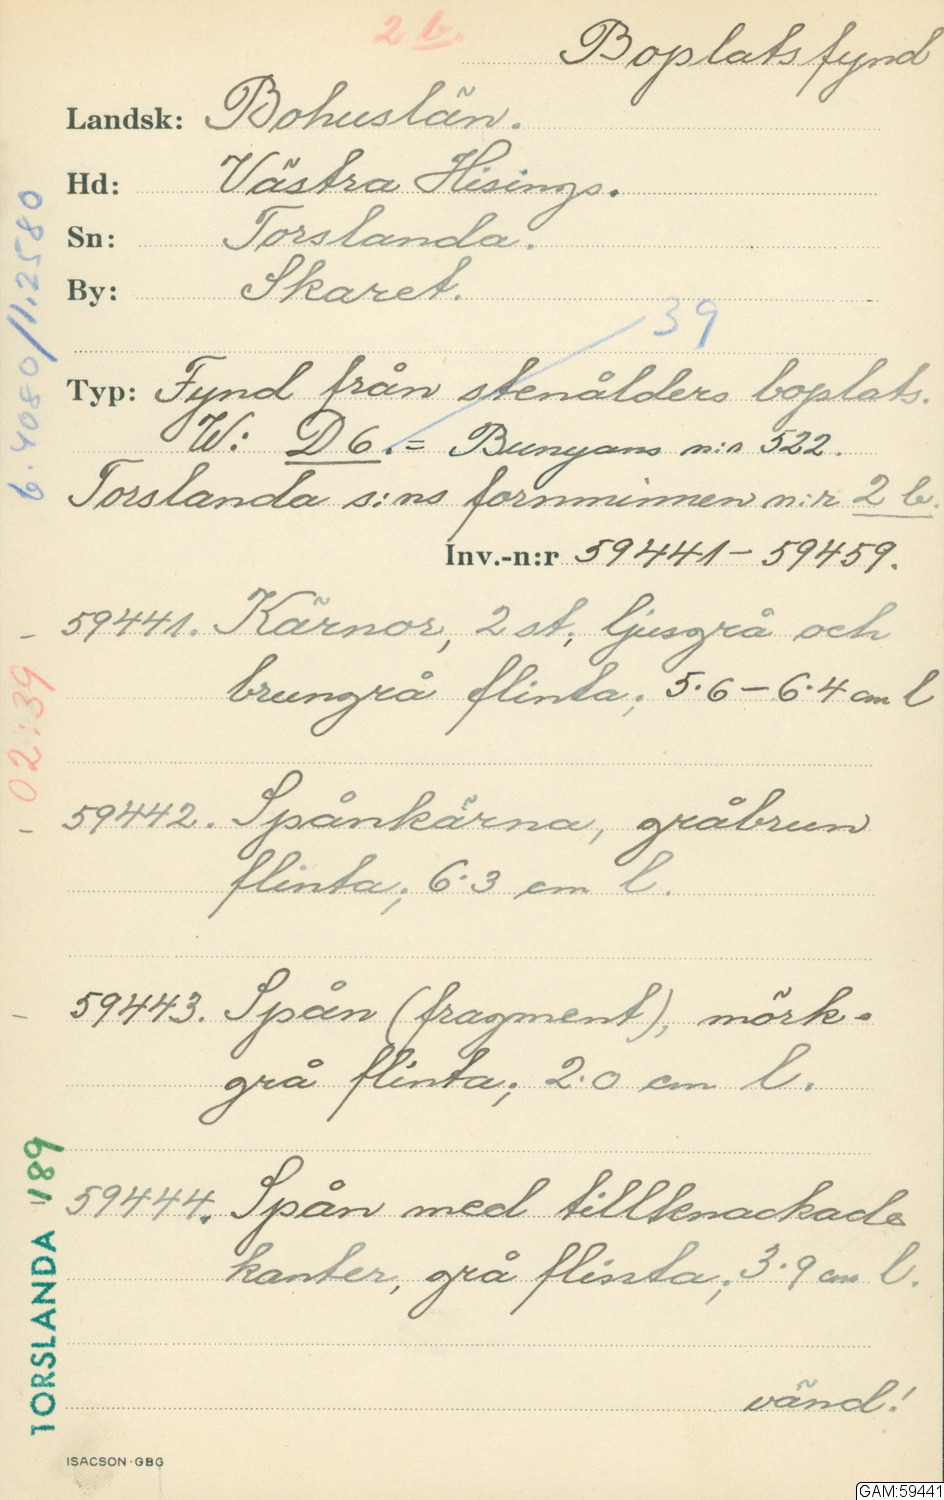 2 b.
Boplatsfynd
Landsk: Bohuslän.
Hd: Västra Hisings.
Sn: Torslanda.
By: Skaret.
39
Typ: Fynd från stenålders boplats.
W: D 6. = Bunyans n:r 522.
Torslanda s:ns fornminnen n:r 2 b.
Inv.-n:r 59441 – 59459.
59441. Kärnor, 2 st; ljusgrå och
brungrå flinta; 5.6 – 6.4 cm l
59442. Spånkärna, gråbrun
flinta; 6.3 cm l.
59443. Spån (fragment), mörk-
grå flinta; 2.0 cm l.
59444. Spån med tillknackade
kanter, grå flinta; 3.9 cm l.
vänd!
ISACSON·GBG
6.4080/11.2580
02:39
TORSLANDA 189
GAM:59441